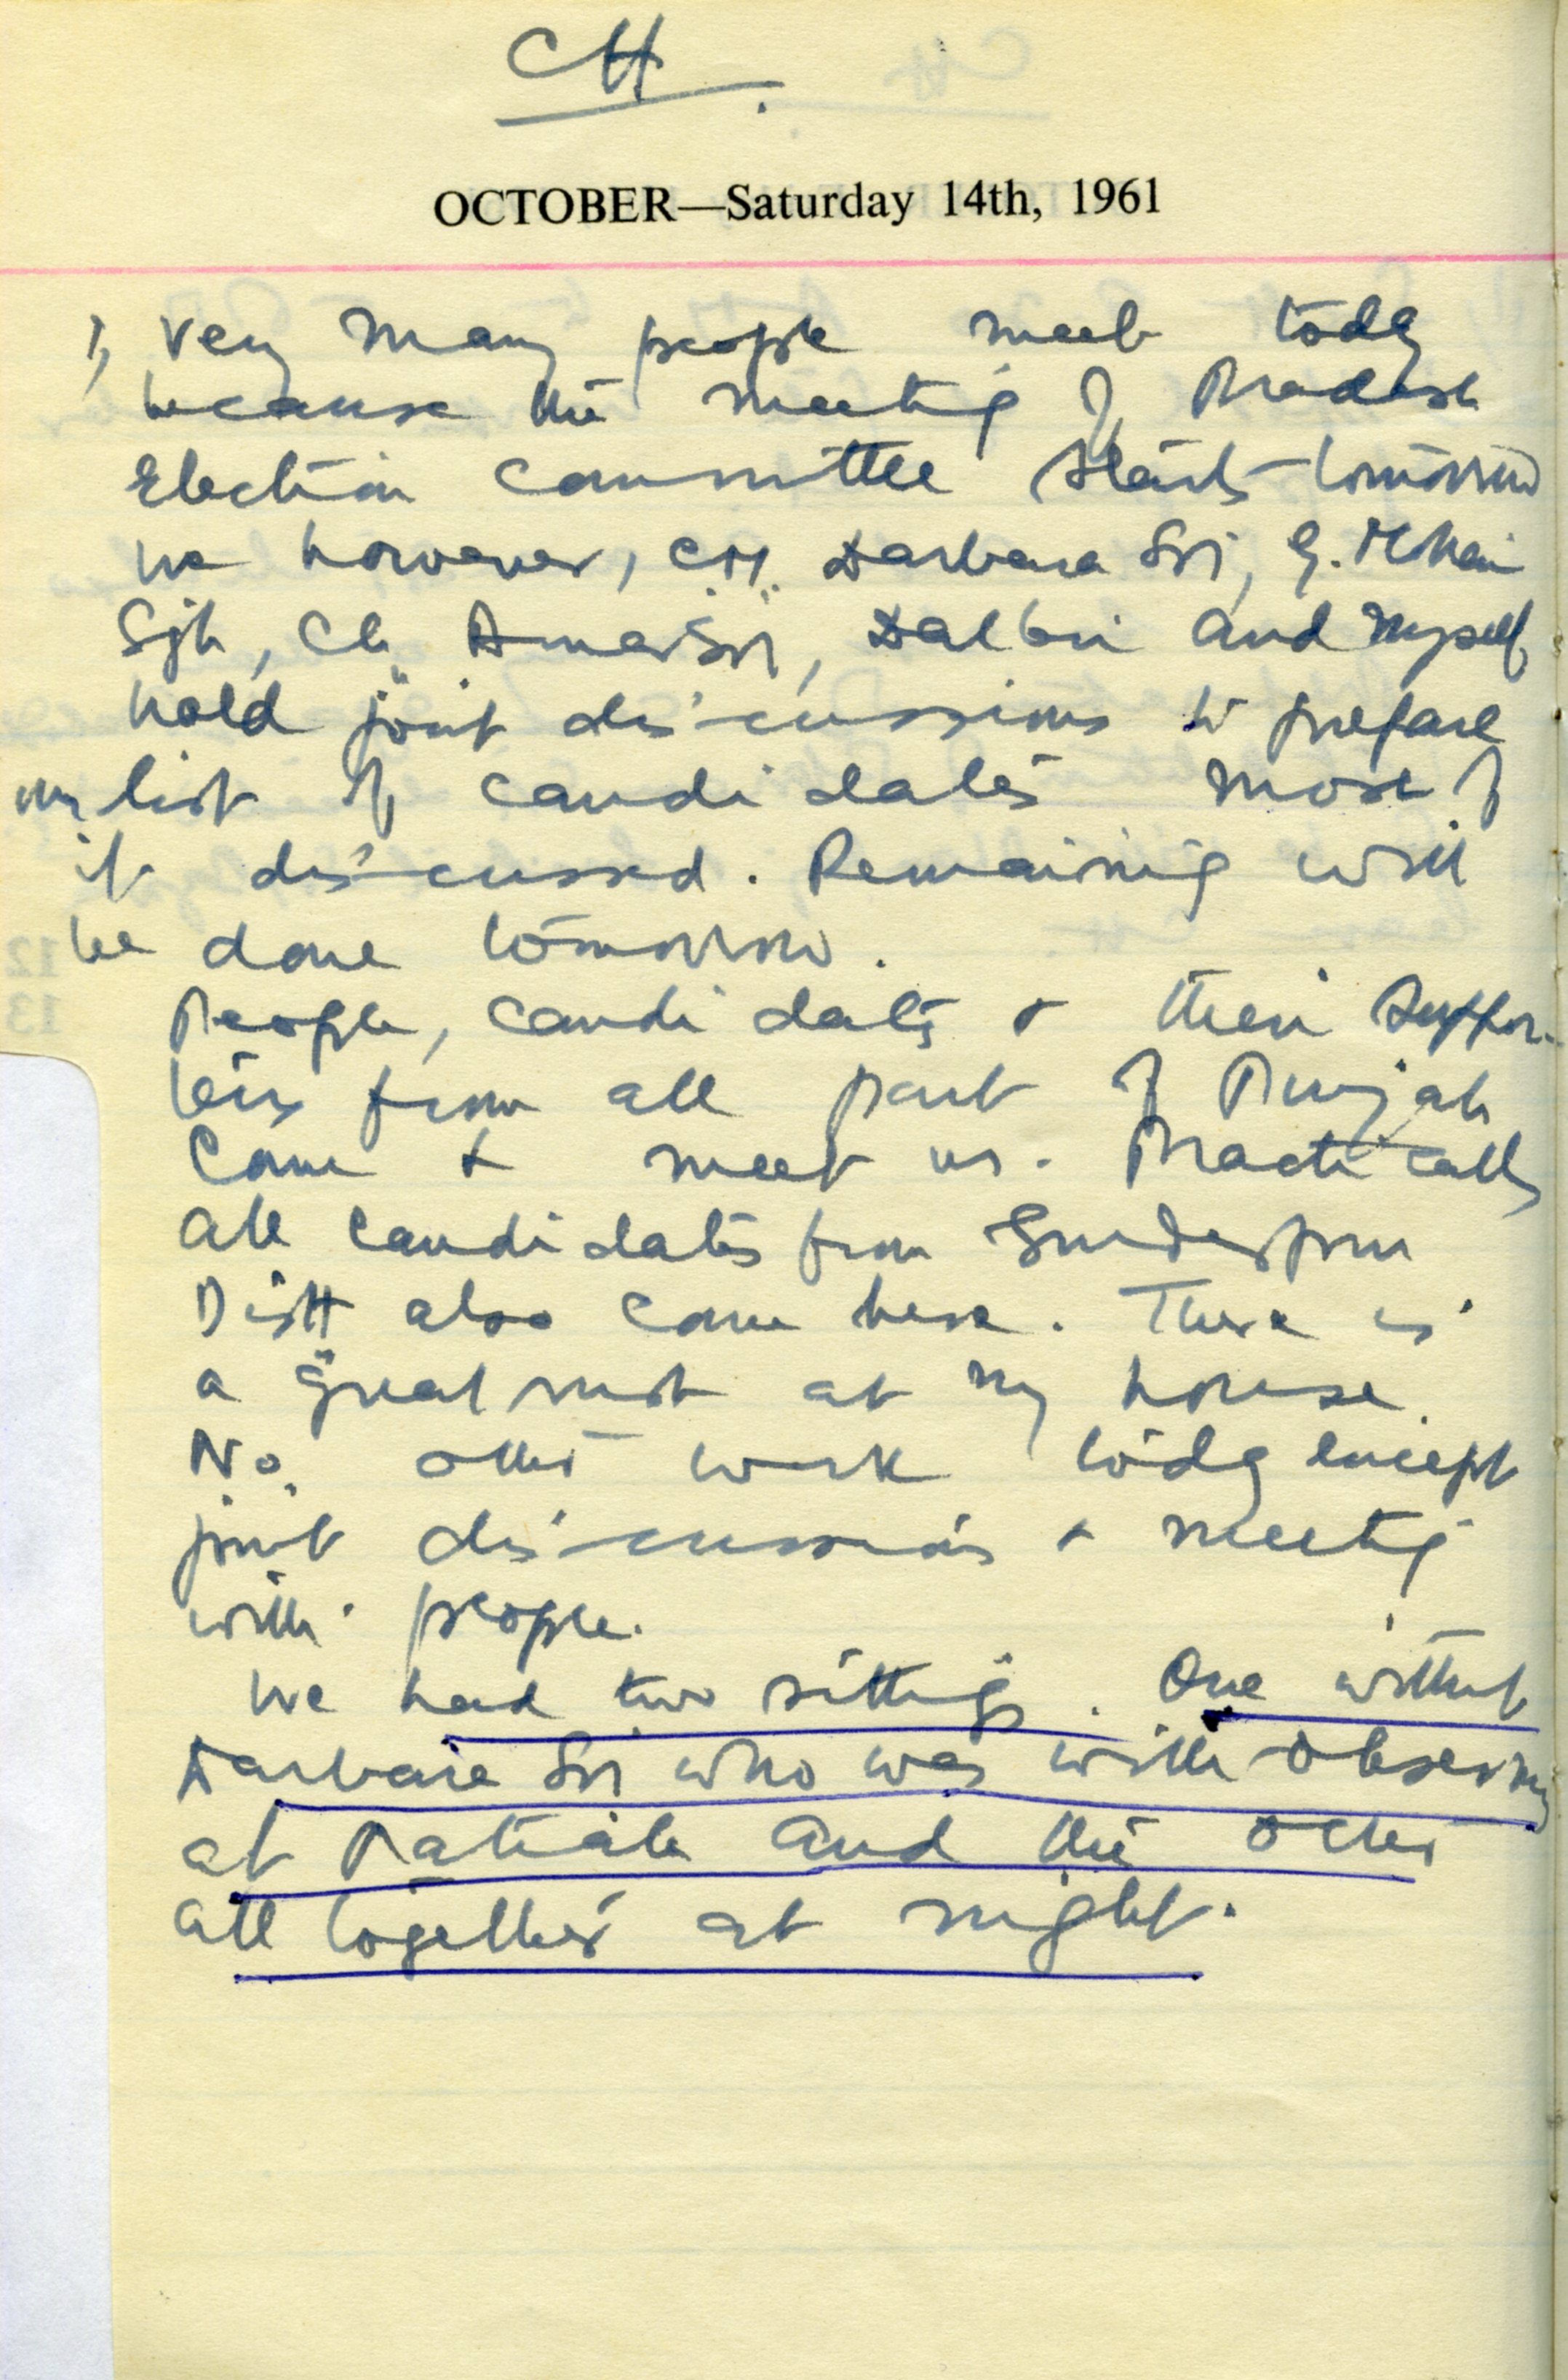 CH.
OCTOBER—Saturday 14th, 1961
1, Very many people meet today
because the meeting of Pradesh
Election Committee starts tomorrow
we however, C.M. Darbara Sri, G. Mohan
Sgh, Ch. Amar Sri, Dalbir and myself
hold joint discussions to prepare
our list of candidates most of
it discussed. Remaining will
be done tomorrow.
People, candidates & their suppor-
ters from all part of Punjab
Come & meet us. Practically
all candidates from Gurdaspur
Distt also come here. There is
a great rush at my house.
No other work today except
joint discussions & meeting
with people.
We had two sittings. One without
Darbara Sri who was with observers
at Patiala and the other
all together at night.
12
13